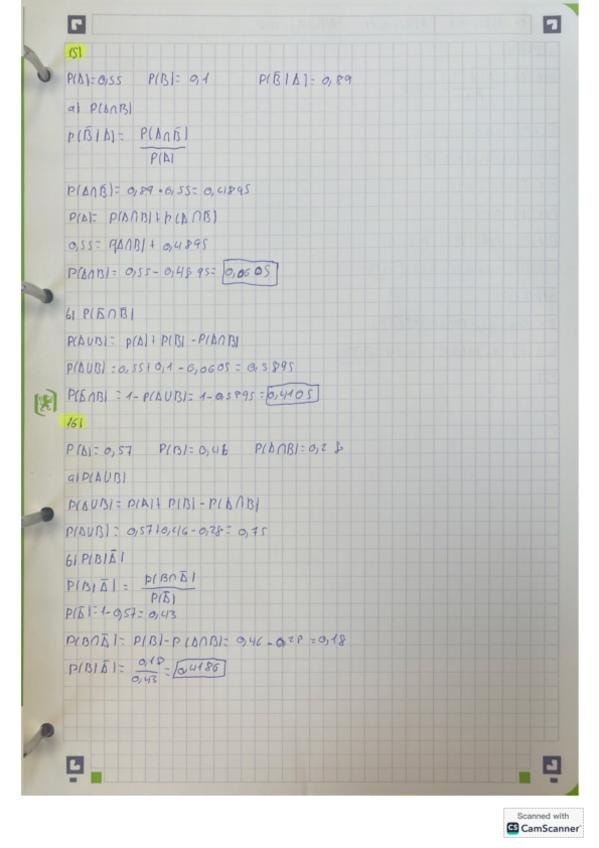 15)
P(A)=0,55 P(B)=0,1 P(B̅|A)=0,89
a) P(A∩B)
P(B̅|A)= P(A∩B̅)
P(A)
P(A∩B̅)=0,89·0,55=0,4895
P(A)= P(A∩B)+P(A∩B̅)
0,55= P(A∩B)+0,4895
P(A∩B)= 0,55-0,4895= 0,0605
b) P(A̅∩B̅)
P(A∪B)= P(A)+P(B)-P(A∩B)
P(A∪B)=0,55+0,1-0,0605=0,5895
P(A̅∩B̅)=1-P(A∪B)=1-0,5895=0,4105
16)
P(A)=0,57 P(B)=0,46 P(A∩B)=0,28
a) P(A∪B)
P(A∪B)=P(A)+P(B)-P(A∩B)
P(A∪B)=0,57+0,46-0,28=0,75
b) P(B|A̅)
P(B|A̅)= P(B∩A̅)
P(A̅)
P(A̅)=1-0,57=0,43
P(B∩A̅)=P(B)-P(A∩B)=0,46-0,28=0,18
P(B|A̅)= 0,18
0,43 =0,4186
Scanned with
CS CamScanner